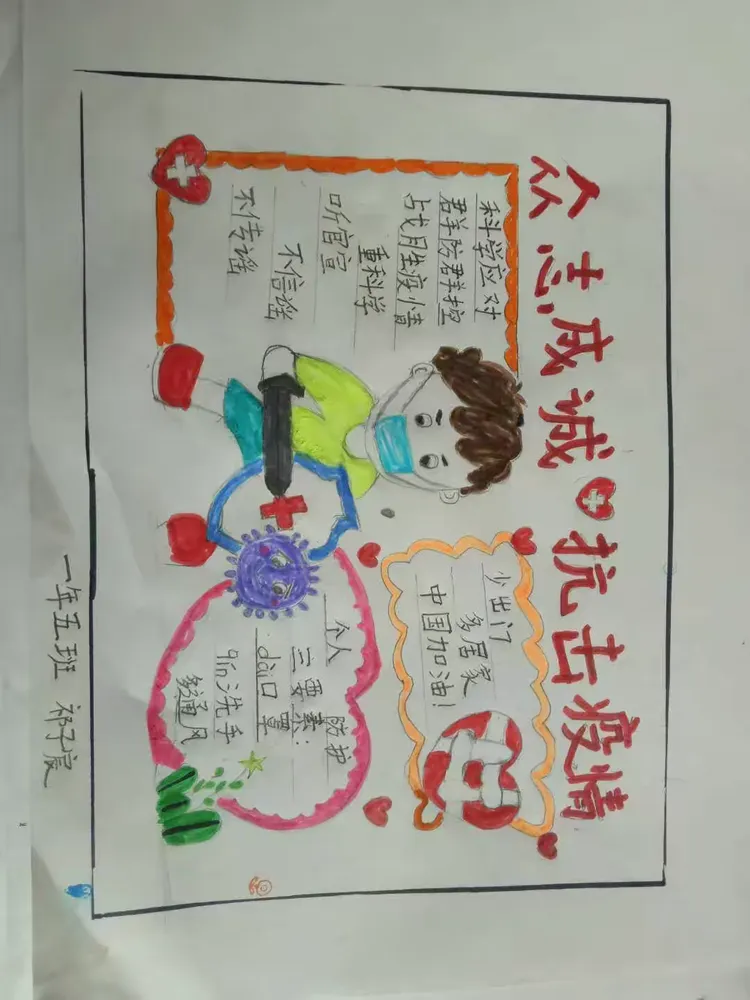 众志成诚抗击疫情
科学应对
群防群控
占戈月生疫情
重科学
听官宣
不信谣
不传谣
少出门
多居家
中国加油!
个人防护
三要素:
dài口罩
qín洗手
多通风
一年五班 祁子宸